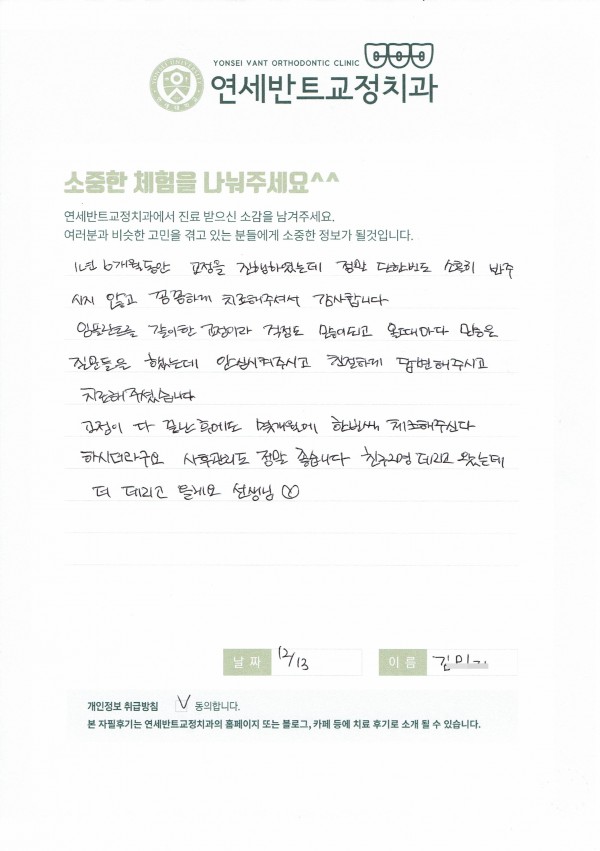 YONSEI VANT ORTHODONTIC CLINIC
연세반트교정치과
소중한 체험을 나눠주세요^^
연세반트교정치과에서 진료 받으신 소감을 남겨주세요.
여러분과 비슷한 고민을 겪고 있는 분들에게 소중한 정보가 될것입니다.
1년 6개월동안 교정을 진행하였는데 정말 단한번도 소홀히 봐주
시지 않고 꼼꼼하게 치료해주셔서 감사합니다
임플란트를 같이한 교정이라 걱정도 많이되고 올때마다 많은
질문들을 했는데 안심시켜주시고 친절하게 답변해주시고
치료해주셨습니다
교정이 다 끝난 후에도 몇개월에 한번씩 체크해주신다
하시더라구요 사후관리도 정말 좋습니다 친구2명 데리고 왔는데
더 데리고 올게요 선생님
날 짜 12/13 이 름 김
개인정보 취급방침 V 동의합니다.
본 자필후기는 연세반트교정치과의 홈페이지 또는 블로그, 카페 등에 치료 후기로 소개 될 수 있습니다.